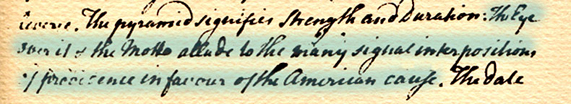 reverse. The pyramid signifies Strength and Duration: The Eye
over it & the Motto allude to the many signal interpositions
of providence in favour of the American cause. The date